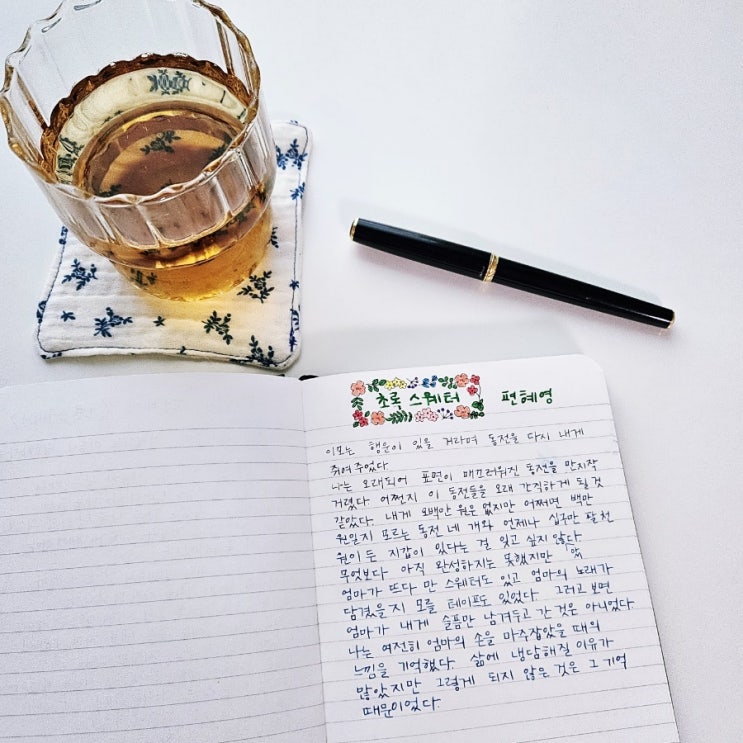 초록 스웨터 편혜영
이모는 행운이 있을 거라며 동전을 다시 내게
쥐여 주었다
나는 오래되어 표면이 매끄러워진 동전을 만지작
거렸다. 어쩐지 이 동전들을 오래 간직하게 될 것
같았다. 내게 오백만 원은 없지만 어쩌면 백만
원일지 모르는 동전 네 개와 언제나 십구만 팔천
원이 든 지갑이 있다는 걸 잊고 싶지 않았다
무엇보다 아직 완성하지는 못했지만
엄마가 뜨다 만 스웨터도 있고 엄마의 노래가
담겼을지 모를 테이프도 있었다. 그러고 보면
엄마가 내게 슬픔만 남겨두고 간 것은 아니었다
나는 여전히 엄마의 손을 마주잡았을 때의
느낌을 기억했다. 삶에 냉담해질 이유가
많았지만 그렇게 되지 않은 것은 그 기억
때문이었다